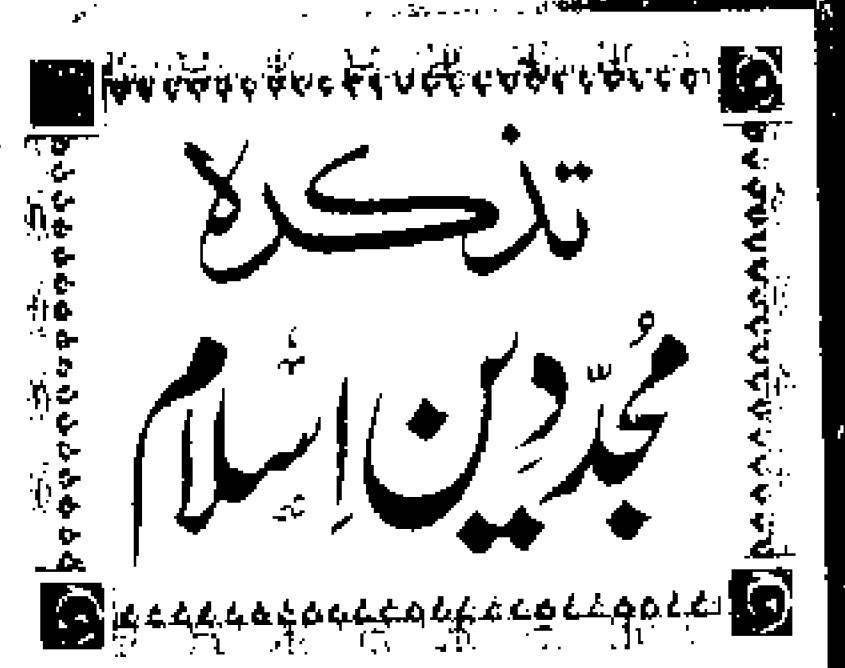 تذکرہ
مُجدّدِین اِسلام